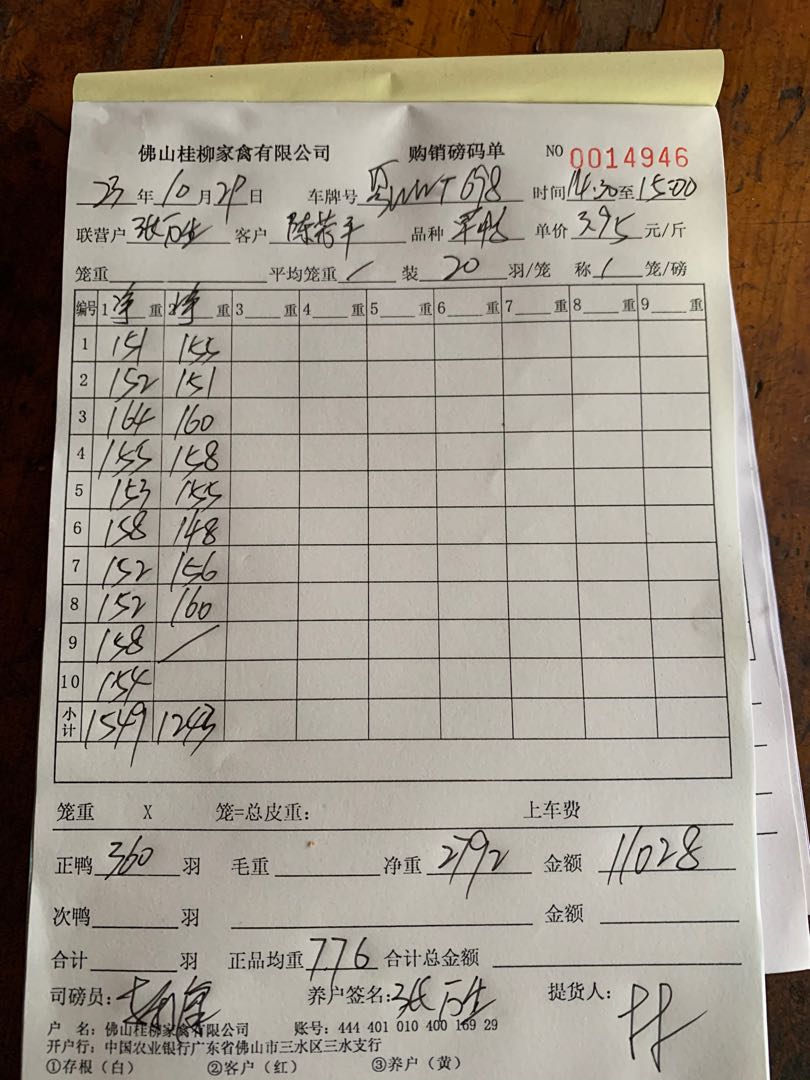 佛山桂柳家禽有限公司 购销磅码单 NO 0014946
23年10月29日 车牌号 698 时间14:30至15:00
联营户 张后生 客户 陈若平 品种 单价 3.95 元/斤
笼重 平均笼重 / 装 20 羽/笼 称 1 笼/磅
编号 1 净 重 2 净 重 3 重 4 重 5 重 6 重 7 重 8 重 9 重
1 151 155
2 152 151
3 164 160
4 155 158
5 153 155
6 158 148
7 152 156
8 152 160
9 158 /
10 154
小计 1549 1243
笼重 X 笼=总皮重: 上车费
正鸭 360 羽 毛重 净重 2792 金额 11028
次鸭 羽 金额
合计 羽 正品均重 7.76 合计总金额
司磅员: 养户签名: 张后生 提货人:
户 名: 佛山桂柳家禽有限公司 账号: 444 401 010 400 169 29
开户行: 中国农业银行广东省佛山市三水区三水支行
①存根(白) ②客户(红) ③养户(黄)